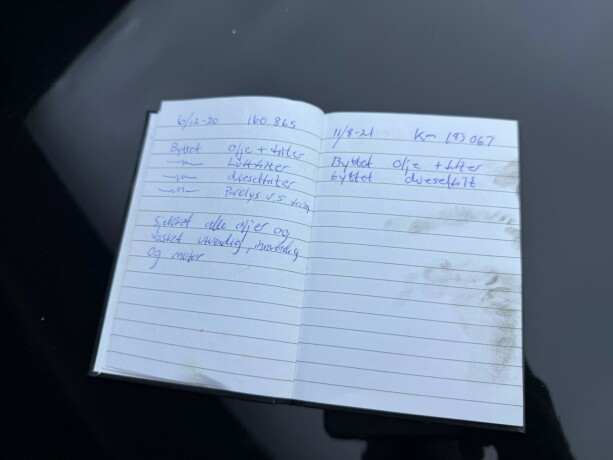 6/12-20 160 865
Byttet Olje + filter
—"— Luftfilter
—"— dieselfilter
—"— Parklys V.S
Sjekket alle oljer og
vasket utvendig, innvendig
og motor
11/8-21 Km 181 067
Byttet Olje + filter
byttet dieselfilt